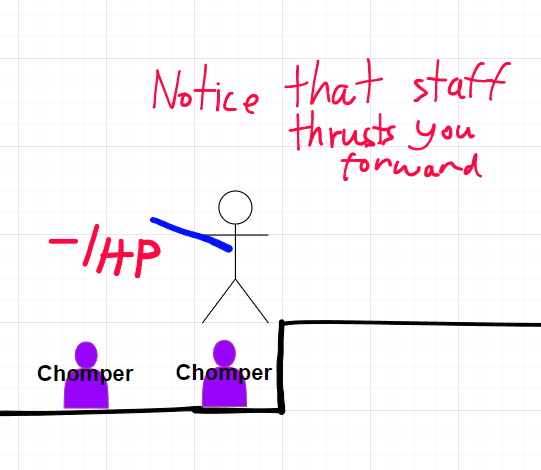 Notice that staff
thrusts you
forward
-1HP
Chomper
Chomper